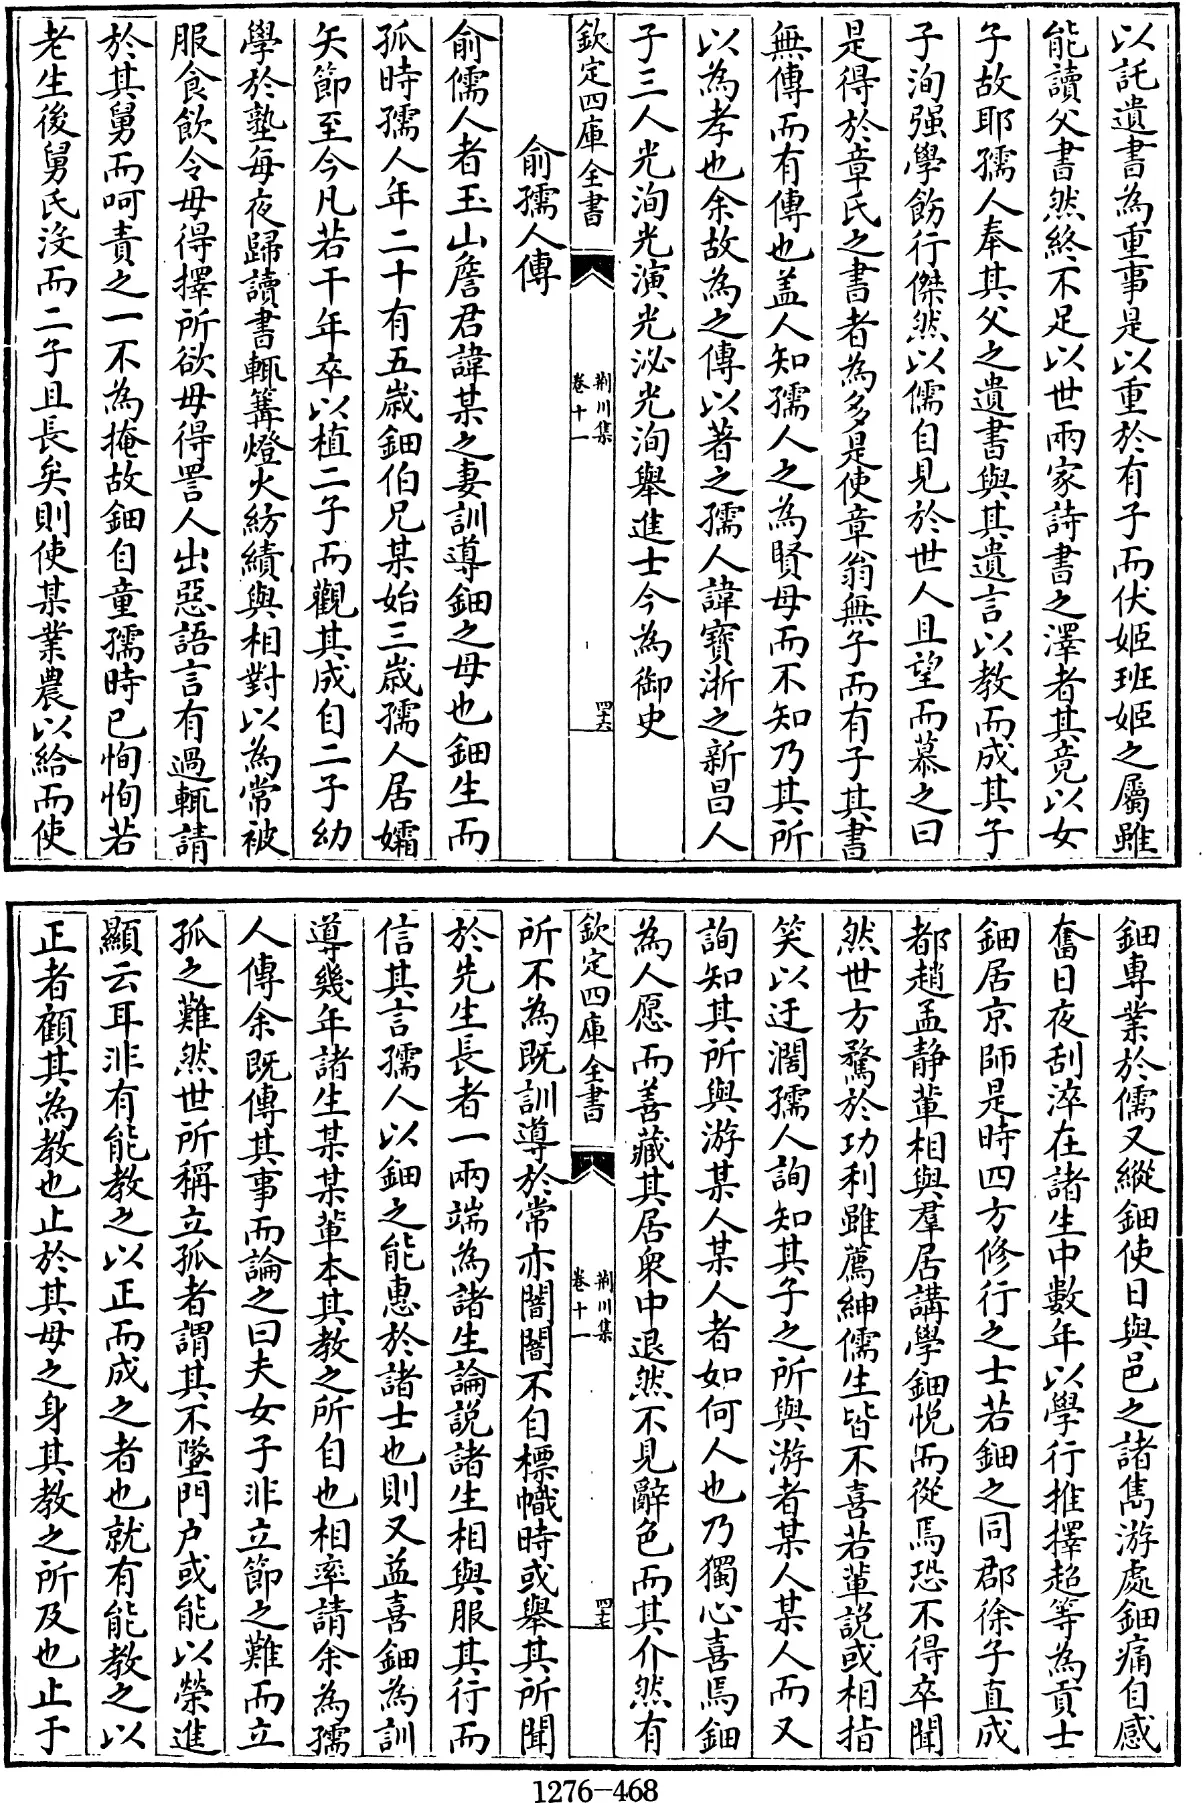 以託遺書為重事是以重於有子而伏姬班姬之屬雖
能讀父書然終不足以世兩家詩書之澤者其竟以女
子故耶孺人奉其父之遺書與其遺言以教而成其子
子洵强學飭行傑然以儒自見於世人且望而慕之曰
是得於章氏之書者為多是使章翁無子而有子其書
無傳而有傳也盖人知孺人之為賢母而不知乃其所
以為孝也余故為之傳以著之孺人諱寳浙之新昌人
子三人光洵光演光泌光洵舉進士今為御史
欽定四庫全書
荆川集
卷十一
四十六
俞孺人傳
俞儒人者玉山詹君諱某之妻訓導鈿之母也鈿生而
孤時孺人年二十有五歲鈿伯兄某始三歲孺人居孀
矢節至今凡若干年卒以植二子而觀其成自二子幼
學於塾每夜歸讀書輒篝燈火紡績與相對以為常被
服食飲令毋得擇所欲毋得詈人出惡語言有過輒請
於其舅而呵責之一不為掩故鈿自童孺時已恂恂若
老生後舅氏沒而二子且長矣則使某業農以給而使
鈿専業於儒又縱鈿使日與邑之諸雋游處鈿痛自感
奮日夜刮淬在諸生中數年以學行推擇超等為貢士
鈿居京師是時四方修行之士若鈿之同郡徐子直成
都趙孟靜輩相與羣居講學鈿悅而從焉恐不得卒聞
然世方騖於功利雖薦紳儒生皆不喜若輩説或相指
笑以迂濶孺人詢知其子之所與游者某人某人而又
詢知其所與游某人某人者如何人也乃獨心喜焉鈿
為人愿而善藏其居衆中退然不見辭色而其介然有
欽定四庫全書
荆川集
卷十一
四十七
所不為既訓導於常亦闇闇不自標幟時或舉其所聞
於先生長者一兩端為諸生論説諸生相與服其行而
信其言孺人以鈿之能惠於諸士也則又益喜鈿為訓
導幾年諸生某某輩本其教之所自也相率請余為孺
人傳余既傳其事而論之曰夫女子非立節之難而立
孤之難然世所稱立孤者謂其不墜門户或能以榮進
顯云耳非有能教之以正而成之者也就有能教之以
正者顧其為教也止於其母之身其教之所及也止于
1276-468